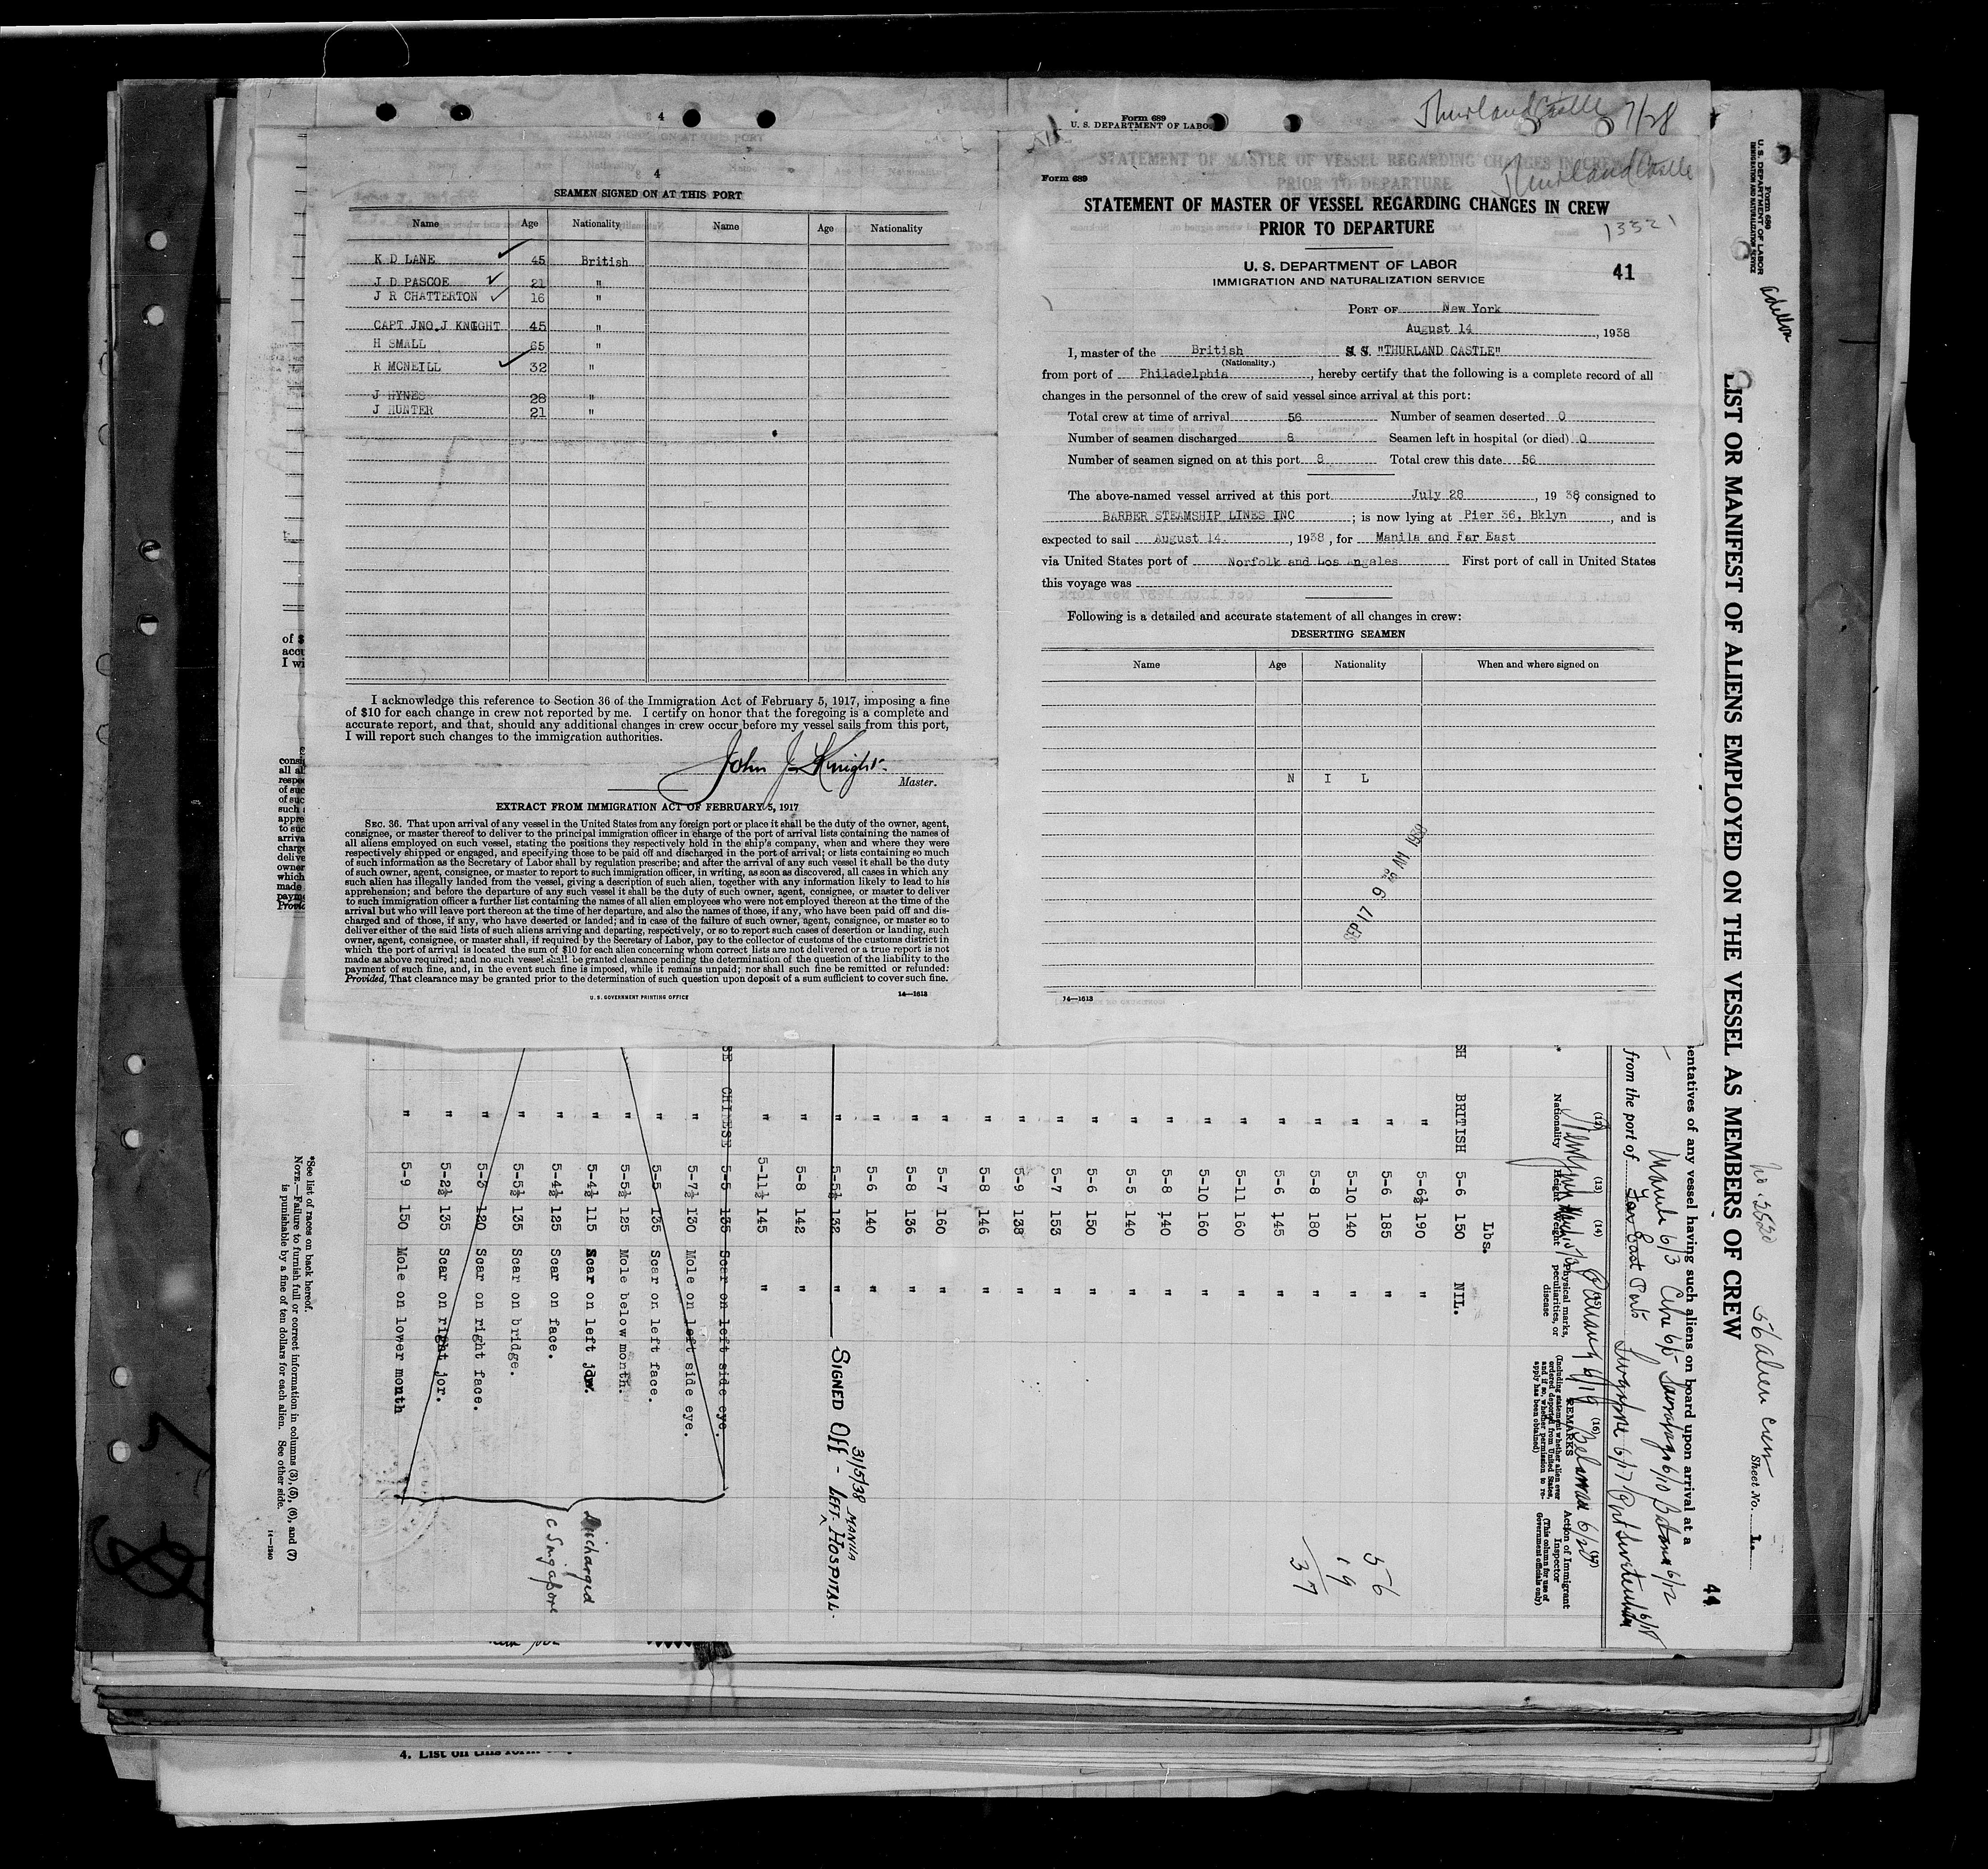 4
SEAMEN SIGNED ON AT THIS PORT
Name Age Nationality Name Age Nationality
K D LANE 45 British
J D PASCOE 21 "
J R CHATTERTON 16 "
CAPT JNO.J KNIGHT 45 "
H SMALL 65 "
R MCNEILL 32 "
J HYNES 28 "
J HUNTER 21 "
I acknowledge this reference to Section 36 of the Immigration Act of February 5, 1917, imposing a fine
of $10 for each change in crew not reported by me. I certify on honor that the foregoing is a complete and
accurate report, and that, should any additional changes in crew occur before my vessel sails from this port,
I will report such changes to the immigration authorities.
John J Knight
Master.
EXTRACT FROM IMMIGRATION ACT OF FEBRUARY 5, 1917
SEC. 36. That upon arrival of any vessel in the United States from any foreign port or place it shall be the duty of the owner, agent,
consignee, or master thereof to deliver to the principal immigration officer in charge of the port of arrival lists containing the names of
all aliens employed on such vessel, stating the positions they respectively hold in the ship's company, when and where they were
respectively shipped or engaged, and specifying those to be paid off and discharged in the port of arrival; or lists containing so much
of such information as the Secretary of Labor shall by regulation prescribe; and after the arrival of any such vessel it shall be the duty
of such owner, agent, consignee, or master to report to such immigration officer, in writing, as soon as discovered, all cases in which any
such alien has illegally landed from the vessel, giving a description of such alien, together with any information likely to lead to his
apprehension; and before the departure of any such vessel it shall be the duty of such owner, agent, consignee, or master to deliver
to such immigration officer a further list containing the names of all alien employees who were not employed thereon at the time of the
arrival but who will leave port thereon at the time of her departure, and also the names of those, if any, who have been paid off and dis-
charged and of those, if any, who have deserted or landed; and in case of the failure of such owner, agent, consignee, or master so to
deliver either of the said lists of such aliens arriving and departing, respectively, or so to report such cases of desertion or landing, such
owner, agent, consignee, or master shall, if required by the Secretary of Labor, pay to the collector of customs of the customs district in
which the port of arrival is located the sum of $10 for each alien concerning whom correct lists are not delivered or a true report is not
made as above required; and no such vessel shall be granted clearance pending the determination of the question of the liability to the
payment of such fine, and, in the event such fine is imposed, while it remains unpaid; nor shall such fine be remitted or refunded:
Provided, That clearance may be granted prior to the determination of such question upon deposit of a sum sufficient to cover such fine.
U. S. GOVERNMENT PRINTING OFFICE 14—1613
Form 689
U. S. DEPARTMENT OF LABO
Thurland Castle 7/28
Thurland Castle
Form 689
STATEMENT OF MASTER OF VESSEL REGARDING CHANGES IN CREW
PRIOR TO DEPARTURE
13321
U. S. DEPARTMENT OF LABOR
IMMIGRATION AND NATURALIZATION SERVICE
41
PORT OF New York
August 14, 1938
I, master of the British S. S. "THURLAND CASTLE"
(Nationality.)
from port of Philadelphia, hereby certify that the following is a complete record of all
changes in the personnel of the crew of said vessel since arrival at this port:
Total crew at time of arrival 56 Number of seamen deserted 0
Number of seamen discharged 8 Seamen left in hospital (or died) 0
Number of seamen signed on at this port 8 Total crew this date 56
The above-named vessel arrived at this port July 28, 1938, consigned to
BARBER STEAMSHIP LINES INC; is now lying at Pier 36, Bklyn, and is
expected to sail August 14, 1938, for Manila and Far East
via United States port of Norfolk and Los Angeles First port of call in United States
this voyage was
Following is a detailed and accurate statement of all changes in crew:
DESERTING SEAMEN
Name Age Nationality When and where signed on
N I L
SEP 17 9 AM 1938
14—1613
Form 689
U. S. DEPARTMENT OF LABOR
IMMIGRATION AND NATURALIZATION SERVICE
LIST OR MANIFEST OF ALIENS EMPLOYED ON THE VESSEL AS MEMBERS OF CREW
56 alien crew
Sheet No. 1.
44
entatives of any vessel having such aliens on board upon arrival at a
from the port of Far East Ports
(12) (13) (14) (15) (16) (17)
Nationality Height Weight Physical marks, peculiarities, or disease
REMARKS
(Including statement whether alien ever ordered deported from United States, and if so, whether permission to reapply has been obtained)
Action of Immigrant Inspector
(This column for use of Government officials only)
Lbs.
BRITISH 5-6 150 NIL.
" 5-6½ 190 "
" 5-6 185 "
" 5-10 140 "
" 5-8 180 "
" 5-6 145 "
" 5-11 160 "
" 5-10 160 "
" 5-8 140 "
" 5-5 140 "
" 5-6 150 "
" 5-7 153 "
" 5-9 138 "
" 5-8 146 "
" 5-7 160 "
" 5-8 136 "
" 5-6 140 "
" 5-5½ 132 " SIGNED OFF - LEFT HOSPITAL. 31/5/38 MANILA
" 5-8 142 "
" 5-11½ 145 "
CHINESE 5-5 135 Scar on left side eye.
" 5-7½ 130 Mole on left side eye.
" 5-5 135 Scar on left face.
" 5-5½ 125 Mole below month.
" 5-4½ 115 Scar on left jow.
" 5-4½ 125 Scar on face.
" 5-5½ 135 Scar on bridge.
" 5-3 120 Scar on right face.
" 5-2½ 135 Scar on right jor.
" 5-9 150 Mole on lower month
56
19
37
Discharged
Singapore
*See list of races on back hereof.
NOTE.—Failure to furnish full or correct information in columns (3), (5), (6), and (7)
is punishable by a fine of ten dollars for each alien. See other side.
14—1240